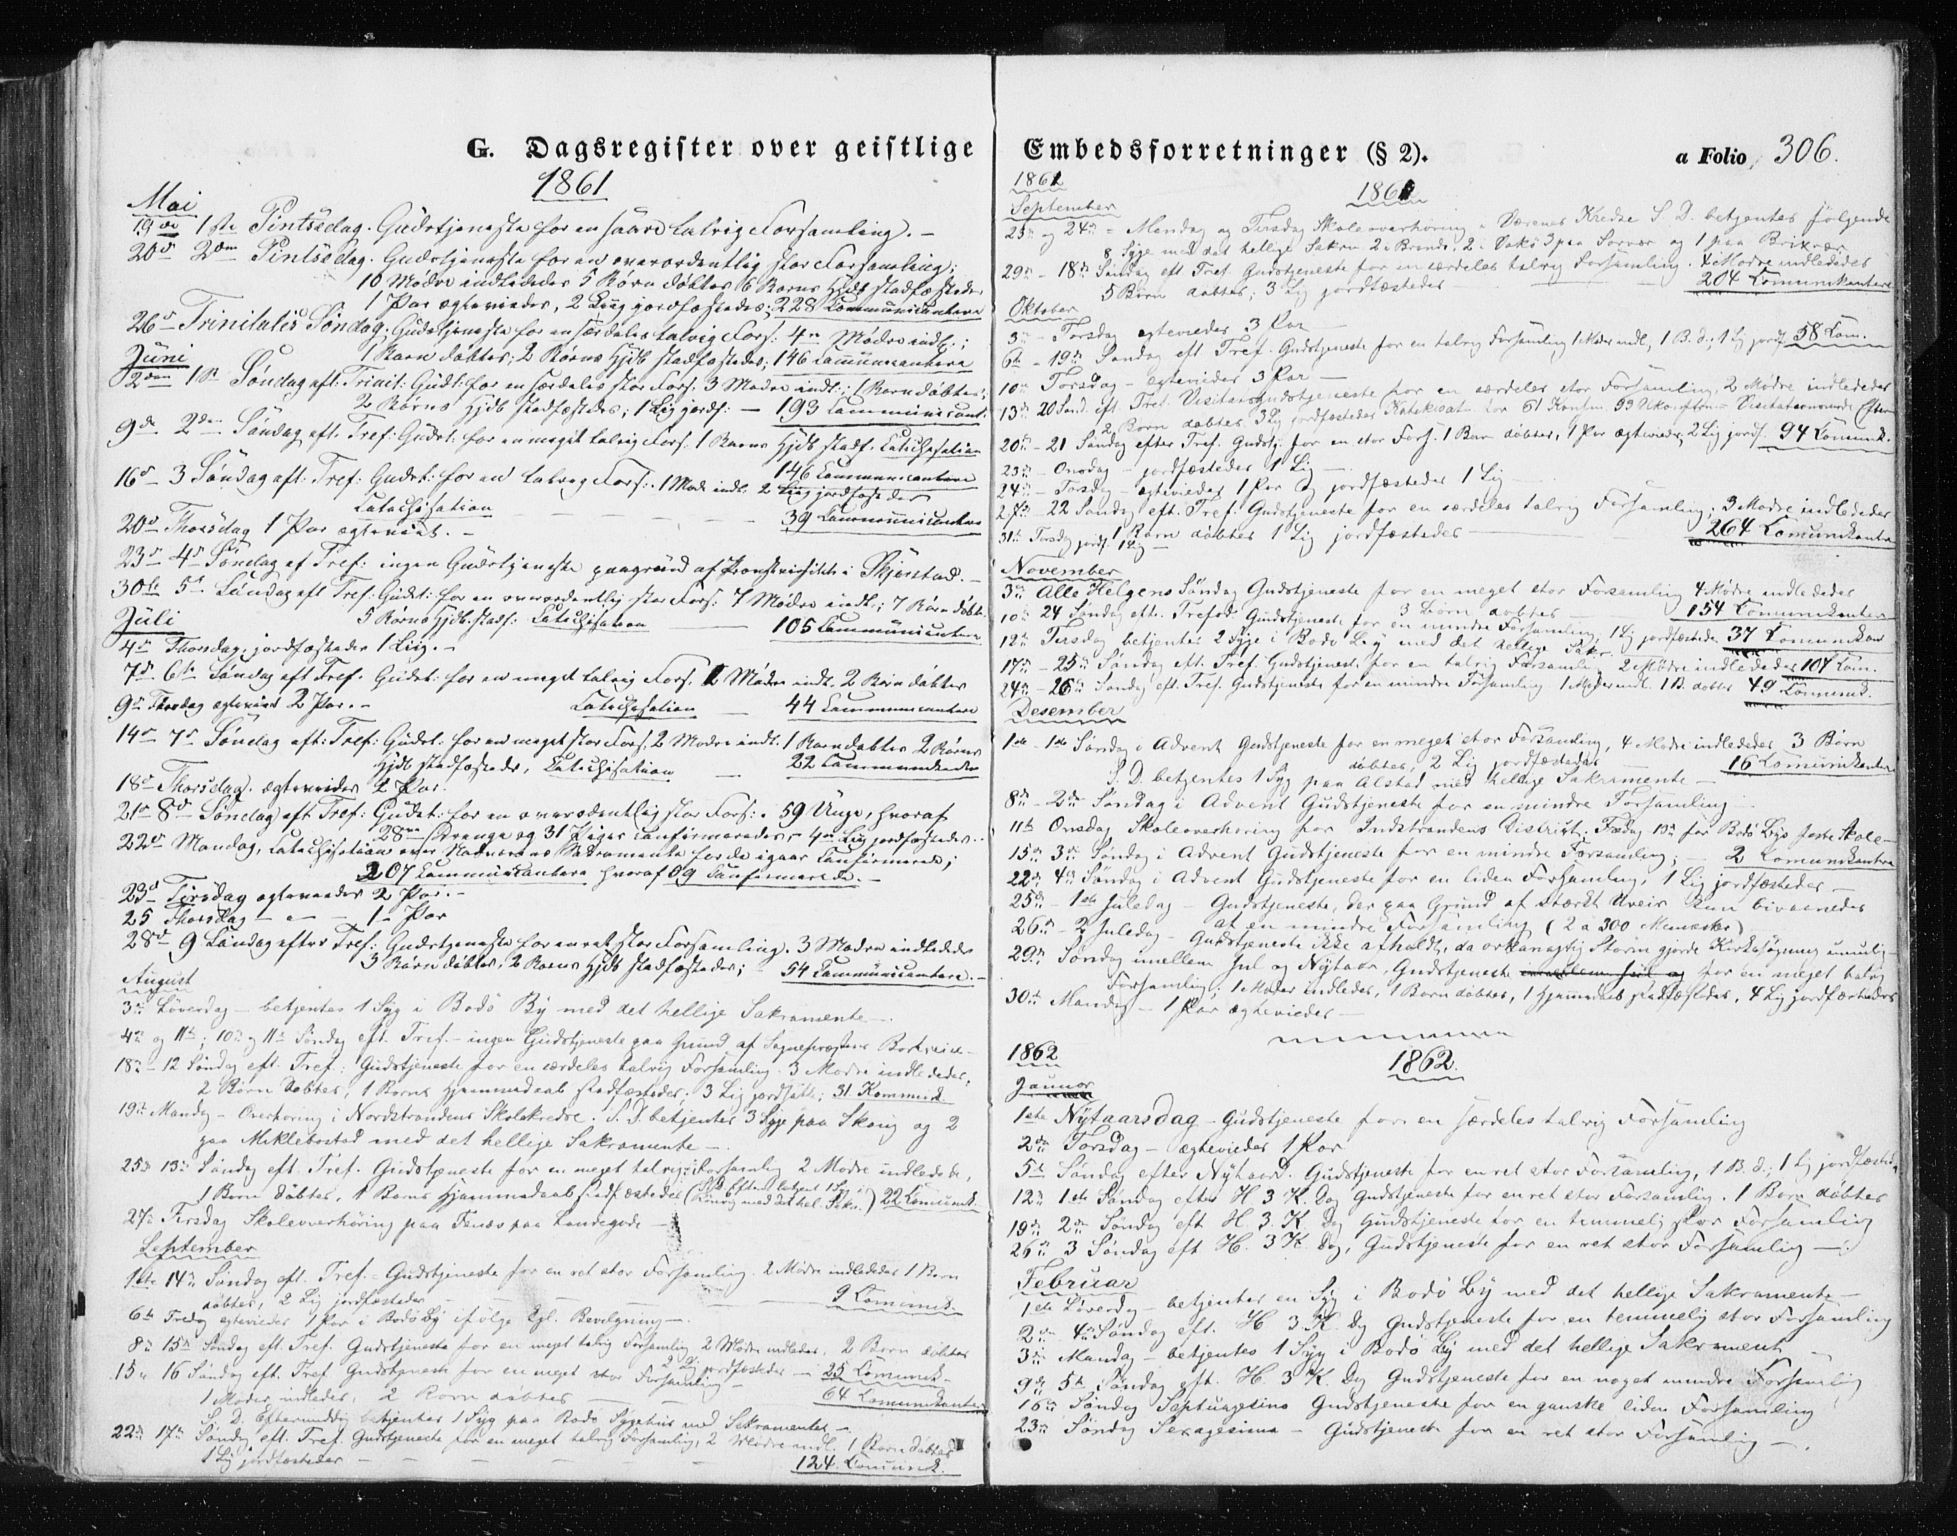 G. Dagsregister over geistlige
1861
Mai
19de 1ste Pintsedag. Gudstjeneste for en saare talrig Forsamling. –
20d 2den Pintsedag. Gudstjeneste for en overordentlig stor Forsamling;
10 Mødre indlededes 5 Børn døbtes 6 Børns Hjdb stadfæstedes
1 Par ægteviedes, 2 Liig jordfæstedes; 228 Communicantere
26d Trinitatis Søndag. Gudstjeneste for en særdeles talrig Fors: 4 Mødre indl.;
Juni
1 Barn døbtes; 2 Børns Hjdb stadfæstedes; 146 Communicantere
2den 1ste Søndag eft: Trinit: Gudst: for en særdeles stor Fors. 3 Mødre indl:; 1 Barn døbtes;
2 Børns Hjdb stadfæstedes; 1 Lig jordf: – 193 Communicant.
9de 2den Søndag eft. Tref: Gudst: for en meget talrig Fors. 1 Barns Hjdb stadf. Catechisation
146 Communicantere
16d 3 Søndag eft: Tref: Gudst: for en talrig Fors:. 1 Mod. indl. 2 Liig jordfæstedes
Catechisation – – – 39 Communicantere
20d Thorsdag 1 Par ægteviet. –
23d 4d Søndag ef Tref: ingen Gudstjeneste paagrund af Provstevisitats i Skjerstad. –
30te 5d Søndag eft Tref: Gudst: for en overordentlig stor Fors: 7 Mødre indl.; 7 Børn døbt.
Juli
5 Børns Hjdb. stadf: Catechisation – 105 Communicantere
4de Thorsdag: jordfæstedes 1 Liig. –
7d 6te Søndag eft Tref. Gudst: for en meget talrig Fors. 2 Mødre indl. 2 Børn døbtes
Catechisation – 44 Communicantere
9de Tirsdag ægteviet 2 Par. –
14d 7d Søndag eft: Tref: Gudst: for en meget stor Fors. 2 Mødre indl. 1 Barn døbtes 2 Børns
Hjdb stadfæstedes, Catechisation – 22 Communicantere
18d Thorsdag. ægteviedes 2 Par.
21d 8d Søndag eft Tref: Gudst: for en overordentlig stor Fors:. 59 Unge, hvoraf
28 Drenge og 31 Piger confirmeredes – 4 Liig jordfæstedes. –
22d Mandag, Catechisation over Nadverens Sakramente for de igaar Confirmerede;
207 Communicantere hvoraf 59 Confirmerede. –
23d Tirsdag ægteviedes 2 Par. –
25 Thorsdag – – 1 Par
28d 9 Søndag efter Tref: Gudstjeneste for en ret stor Forsamling. 3 Mødre indlededes
3 Børn døbtes, 2 Børns Hjdb stadfæstedes; – 54 Communicantere. –
August
3die Løverdag – betjentes 1 Syg i Bodø By med det hellige Sakramente –.
4de og 11te; 10de og 11te Søndag eft. Tref. – ingen Gudstjeneste paa Grund af Sognepræstens Bortreise –
18de – 12 Søndag eft. Tref: Gudstjeneste for en særdeles talrig Forsamling. 3 Mødre indlededes,
2 Børn døbtes, 1 Barns Hjemmedaab stadfæstedes. 3 Lig jordfæstt.; 31 Kommunik.
19de Mandag – Overhøring i Nordstrandens Skolekreds. S. D. betjentes 3 Syge paa Skeng og 2
paa Miklebostad med det hellige Sakramente –.
25de 13de Søndag eft. Tref. Gudstjeneste for en meget talrig Forsamling 2 Mødre indledede,
1 Barn døbtes, 1 Barns Hjemmedaab stadfæstedes 22 Comunik.
27de Tirsdag Skoleoverhøring paa Fenæs paa Landegode –
September
1ste 14de Søndag eft. Tref. – Gudstjeneste for en ret stor Forsamling. 2 Mødre indlededes 1 Barn
døbtes, 2 Lig jordfæstedes – – – 9 Comunik.
6te Fredag ægteviedes 1 Par i Bodø By ifølge Kgl. Bevilgning –.
8de 15de Søndag eft. Tref. Gudstjeneste for en meget talrig Forsamling 2 Mødre indledes. 2 Børn døbtes
2 Lig jordfæstedes – 25 Comunik.
15de 16 Søndag eft. Tref Gudstjeneste for en meget stor Forsamling –
1 Moder indledes, 2 Børn døbtes – – 64 Comunikanter
S. D. Eftermiddag betjentes 1 Syg paa Bodø Sygehus med Sakramentet –
22de 17de Søndag eft. Tref. Gudstjeneste for en meget talrig Forsamling, 2 Mødre indl. 1 Barn døbtes
1 Lig jordfæstedes – – – 124 Comunik.
Embedsforretninger (§ 2).
a Folio 306.
1861
1861
September
23de og 24de – Mandag og Tirsdag Skoleoverhøring i Værenes Kredse S. D. betjentes følgende
8 Syge med det hellige Sakra. 2 i Brende, 2 i Seivaag 3 paa Sorvær og 1 paa Brixvær
29de – 18de Søndag eft Tref Gudstjeneste for en særdeles talrig Forsamling. 4 Mødre indlededes
5 Børn døbtes; 3 Lig jordfæstedes – 204 Comunikantere
Oktober
3die – Torsdag ægteviedes 3 Par –
6te – 19de Søndag eft Tref. Gudstjeneste for en talrig Forsamling 1 Moder indl, 1 B. d., 1 Lig jordf. 58 Com.
10de Torsdag – ægteviedes 3 Par –
13de 20 Sønd. eft Tref. Visitatsgudstjeneste for en særdeles stor Forsamling, 2 Mødre indlededes
2 Børn døbtes 3 Lig jordfæstedes
20de – 21 Søndag efter Tref. Gudstj. for en stor Fors. 1 Barn døbtes, 1 Par ægteviedes, 2 Lig jordf. 94 Comunik.
23de – Onsdag – jordfæstedes 1 Lig –
24de – Torsdag – ægteviedes 1 Par og jordfæstedes 1 Lig
27de – 22 Søndag eft. Tref. Gudstjeneste for en særdeles talrig Forsamling. 3 Mødre indlededes
1 Barn døbtes 1 Lig jordfæstedes – 264 Comunikanter
31te Torsdag jordf. 1 Lig –
November
3die Alle Helgens Søndag Gudstjeneste for en meget stor Forsamling 4 Mødre indlededes
3 Børn døbtes – 154 Comunikanter
10de 24 Søndag eftr. Trefold. Gudstjeneste for en mindre Forsamling, 1 Lig jordfæstedes 37 Comunikant
12te Tirsdag betjentes 2 Syge i Bodø By med det hellige Sakr.
17de – 25de Søndag eft. Tref. Gudstjeneste for en talrig Forsamling 2 Mødre indlededes 104 Com.
24de – 26de Søndag eft. Tref. Gudstjeneste for en mindre Forsamling 1 Moder indl. 1 B. døbtes 49 Comunik.
Desember
1ste – 1ste Søndag i Advent Gudstjeneste for en meget stor Forsamling, 4 Mødre indlededes 3 Børn
døbtes, 2 Lig jordfæstedes – 16 Comunikantere
S. D. betjentes 1 Syg paa Alstad med hellige Sakramente –
8de – 2den Søndag i Advent Gudstjeneste for en mindre Forsamling –
11te Onsdag Skoleoverhøring for Indstrandens District. Fredag 13de for Bodø Byes faste Skole –
15de 3die Søndag i Advent Gudstjeneste for en mindre Forsamling; – 2 Comunikantere
22de 4de Søndag i Advent Gudstjeneste for en liden Forsamling, 1 Lig jordfæstedes –
25de – 1ste Juledag – Gudstjeneste, der paa Grund af stærkt Uveir kun bivaanedes
af en mindre Forsamling (2 a 300 Mennesker)
26de – 2 Juledag – Gudstjeneste ikke afholdt, da orkanagtig Storm gjorde Kirkesøgning umulig –
29de Søndag imellem Jul og Nytaar. Gudstjeneste imellem Jul og for en meget talrig
Forsamling; 1 Moder indledes, 1 Barn døbtes, 1 Hjemmedaab stadfæstedes, 4 Lig jordfæstedes
30te Mandag – 1 Par ægteviedes –
1862
1862.
Januar
1ste Nytaarsdag – Gudstjeneste for en særdeles talrig Forsamling
2den Torsdag – ægteviedes 1 Par
5te Søndag efter Nytaard. Gudstjeneste for en ret stor Forsamling, 1 B. d.; 1 Lig jordfæstedes
12te 1ste Søndag efter H. 3 K. Dag Gudstjeneste for en ret stor Forsamling. 1 Barn døbtes
19de 2den Søndag eft. H. 3. K. Dag Gudstjeneste for en temmelig stor Forsamling
26de 3 Søndag eft H. 3 K. Dag, Gudstjeneste for en ret stor Forsamling –.
Februar
1ste Løverdag – betjentes en Syg i Bodø By med det hellige Sakramente –
2den 4de Søndag eft. H 3 K Dag Gudstjeneste for en temmelig stor Forsamling
3die Mandag – betjentes 1 Syg i Bodø By med det hellige Sakrament –
9de 5te Søndag eft. H. 3 K. Dag Gudstjeneste for en noget mindre Forsamling
16de Søndag Septuagesima Gudstjeneste for en ganske liden Forsamling
23de Søndag Sexagesima – Gudstjeneste for en ret stor Forsamling –.